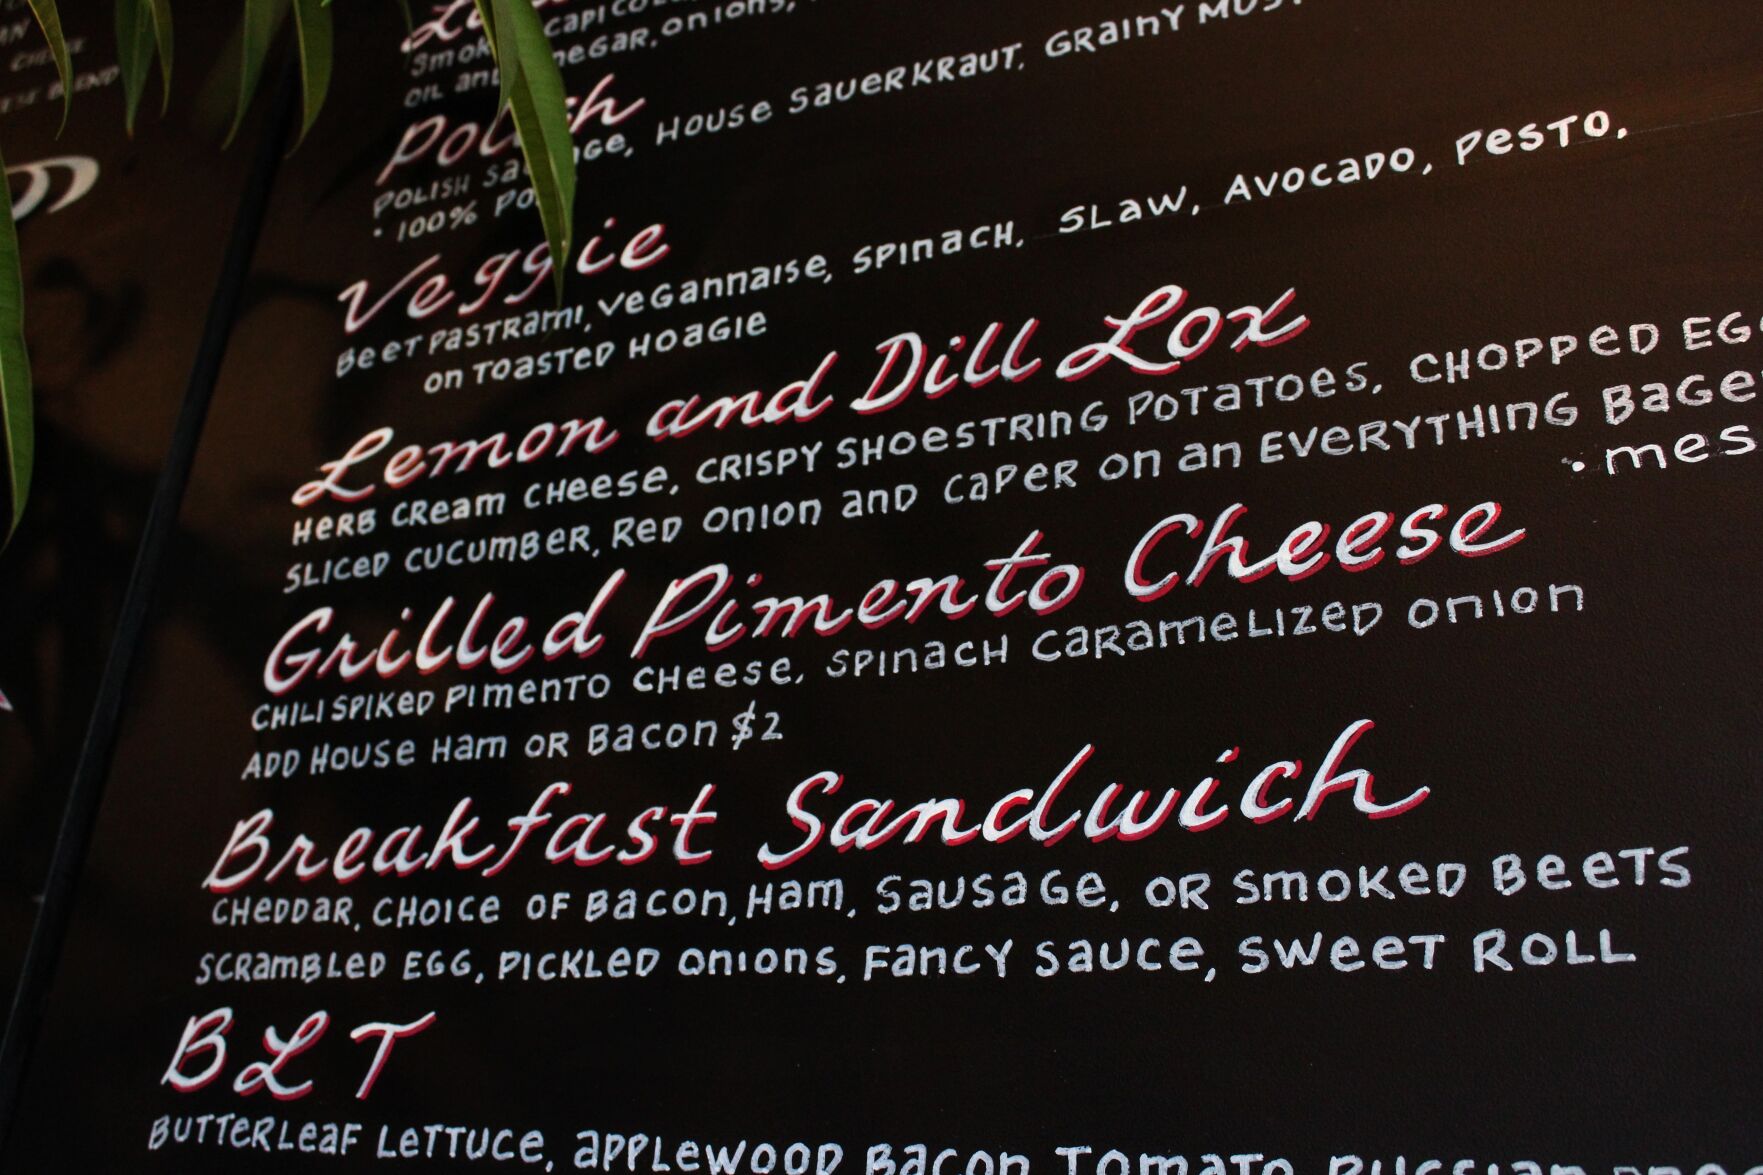 CHEESE
CAPICOLA
OIL AND VINEGAR, ONIONS,
Polish
POLISH SAUSAGE, HOUSE SAUERKRAUT, GRAINY
• 100%
Veggie
BEET PASTRAMI, VEGANNAISE, SPINACH, SLAW, AVOCADO, PESTO,
ON TOASTED HOAGIE
Lemon and Dill Lox
HERB CREAM CHEESE, CRISPY SHOESTRING POTATOES, CHOPPED
SLICED CUCUMBER, RED ONION AND CAPER ON AN EVERYTHING
Grilled Pimento Cheese
CHILI SPIKED PIMENTO CHEESE, SPINACH CARAMELIZED ONION
ADD HOUSE HAM OR BACON $2
Breakfast Sandwich
CHEDDAR, CHOICE OF BACON, HAM, SAUSAGE, OR SMOKED BEETS
SCRAMBLED EGG, PICKLED ONIONS, FANCY SAUCE, SWEET ROLL
BLT
BUTTERLEAF LETTUCE, APPLEWOOD BACON TOMATO RUSSIAN